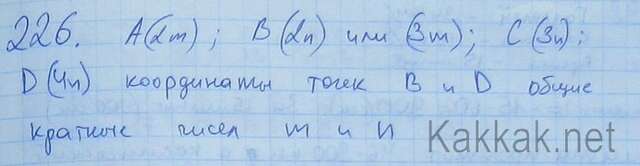 226. A(2m); B(2n) или (3m); C(3n);
D(4n) координаты точек B и D общие
кратные чисел m и n
Kakkak.net